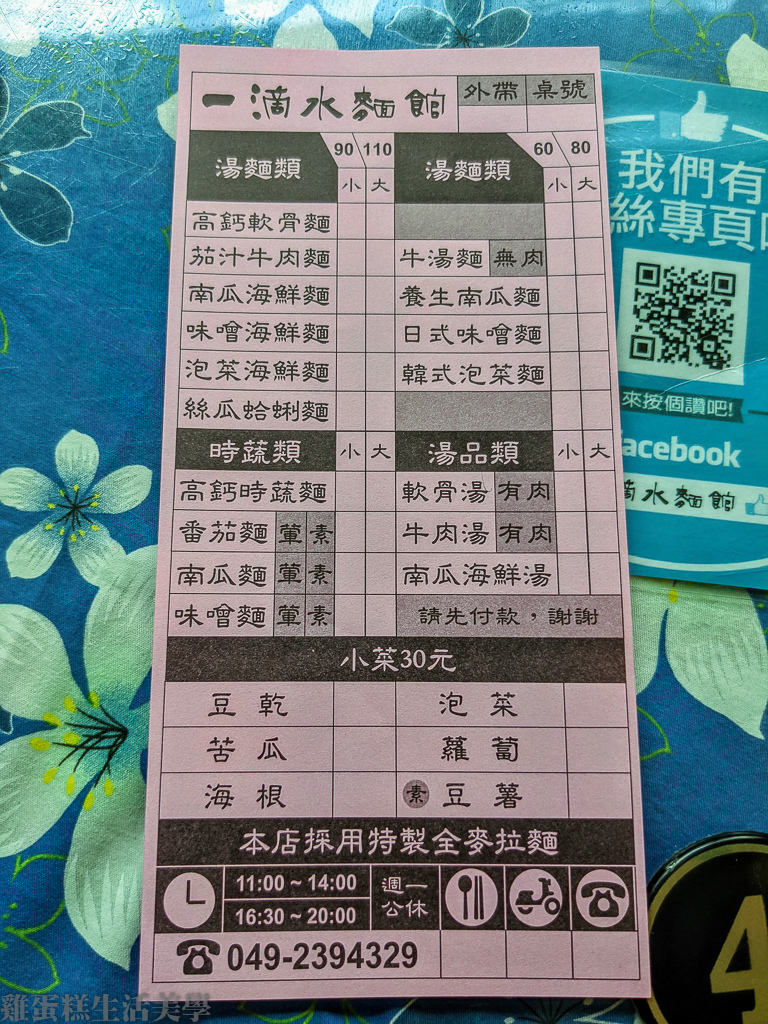 一滴水麵館 外帶 桌號
湯麵類 90 110 湯麵類 60 80
小 大 小 大
高鈣軟骨麵
茄汁牛肉麵 牛湯麵 無肉
南瓜海鮮麵 養生南瓜麵
味噌海鮮麵 日式味噌麵
泡菜海鮮麵 韓式泡菜麵
絲瓜蛤蜊麵
時蔬類 小 大 湯品類 小 大
高鈣時蔬麵 軟骨湯 有肉
番茄麵 葷 素 牛肉湯 有肉
南瓜麵 葷 素 南瓜海鮮湯
味噌麵 葷 素 請先付款,謝謝
小菜30元
豆乾 泡菜
苦瓜 蘿蔔
海根 素 豆薯
本店採用特製全麥拉麵
11:00 ~ 14:00 週一
16:30 ~ 20:00 公休
049-2394329
我們有
絲專頁
來按個讚吧!
acebook
滴水麵館
4
雞蛋糕生活美學